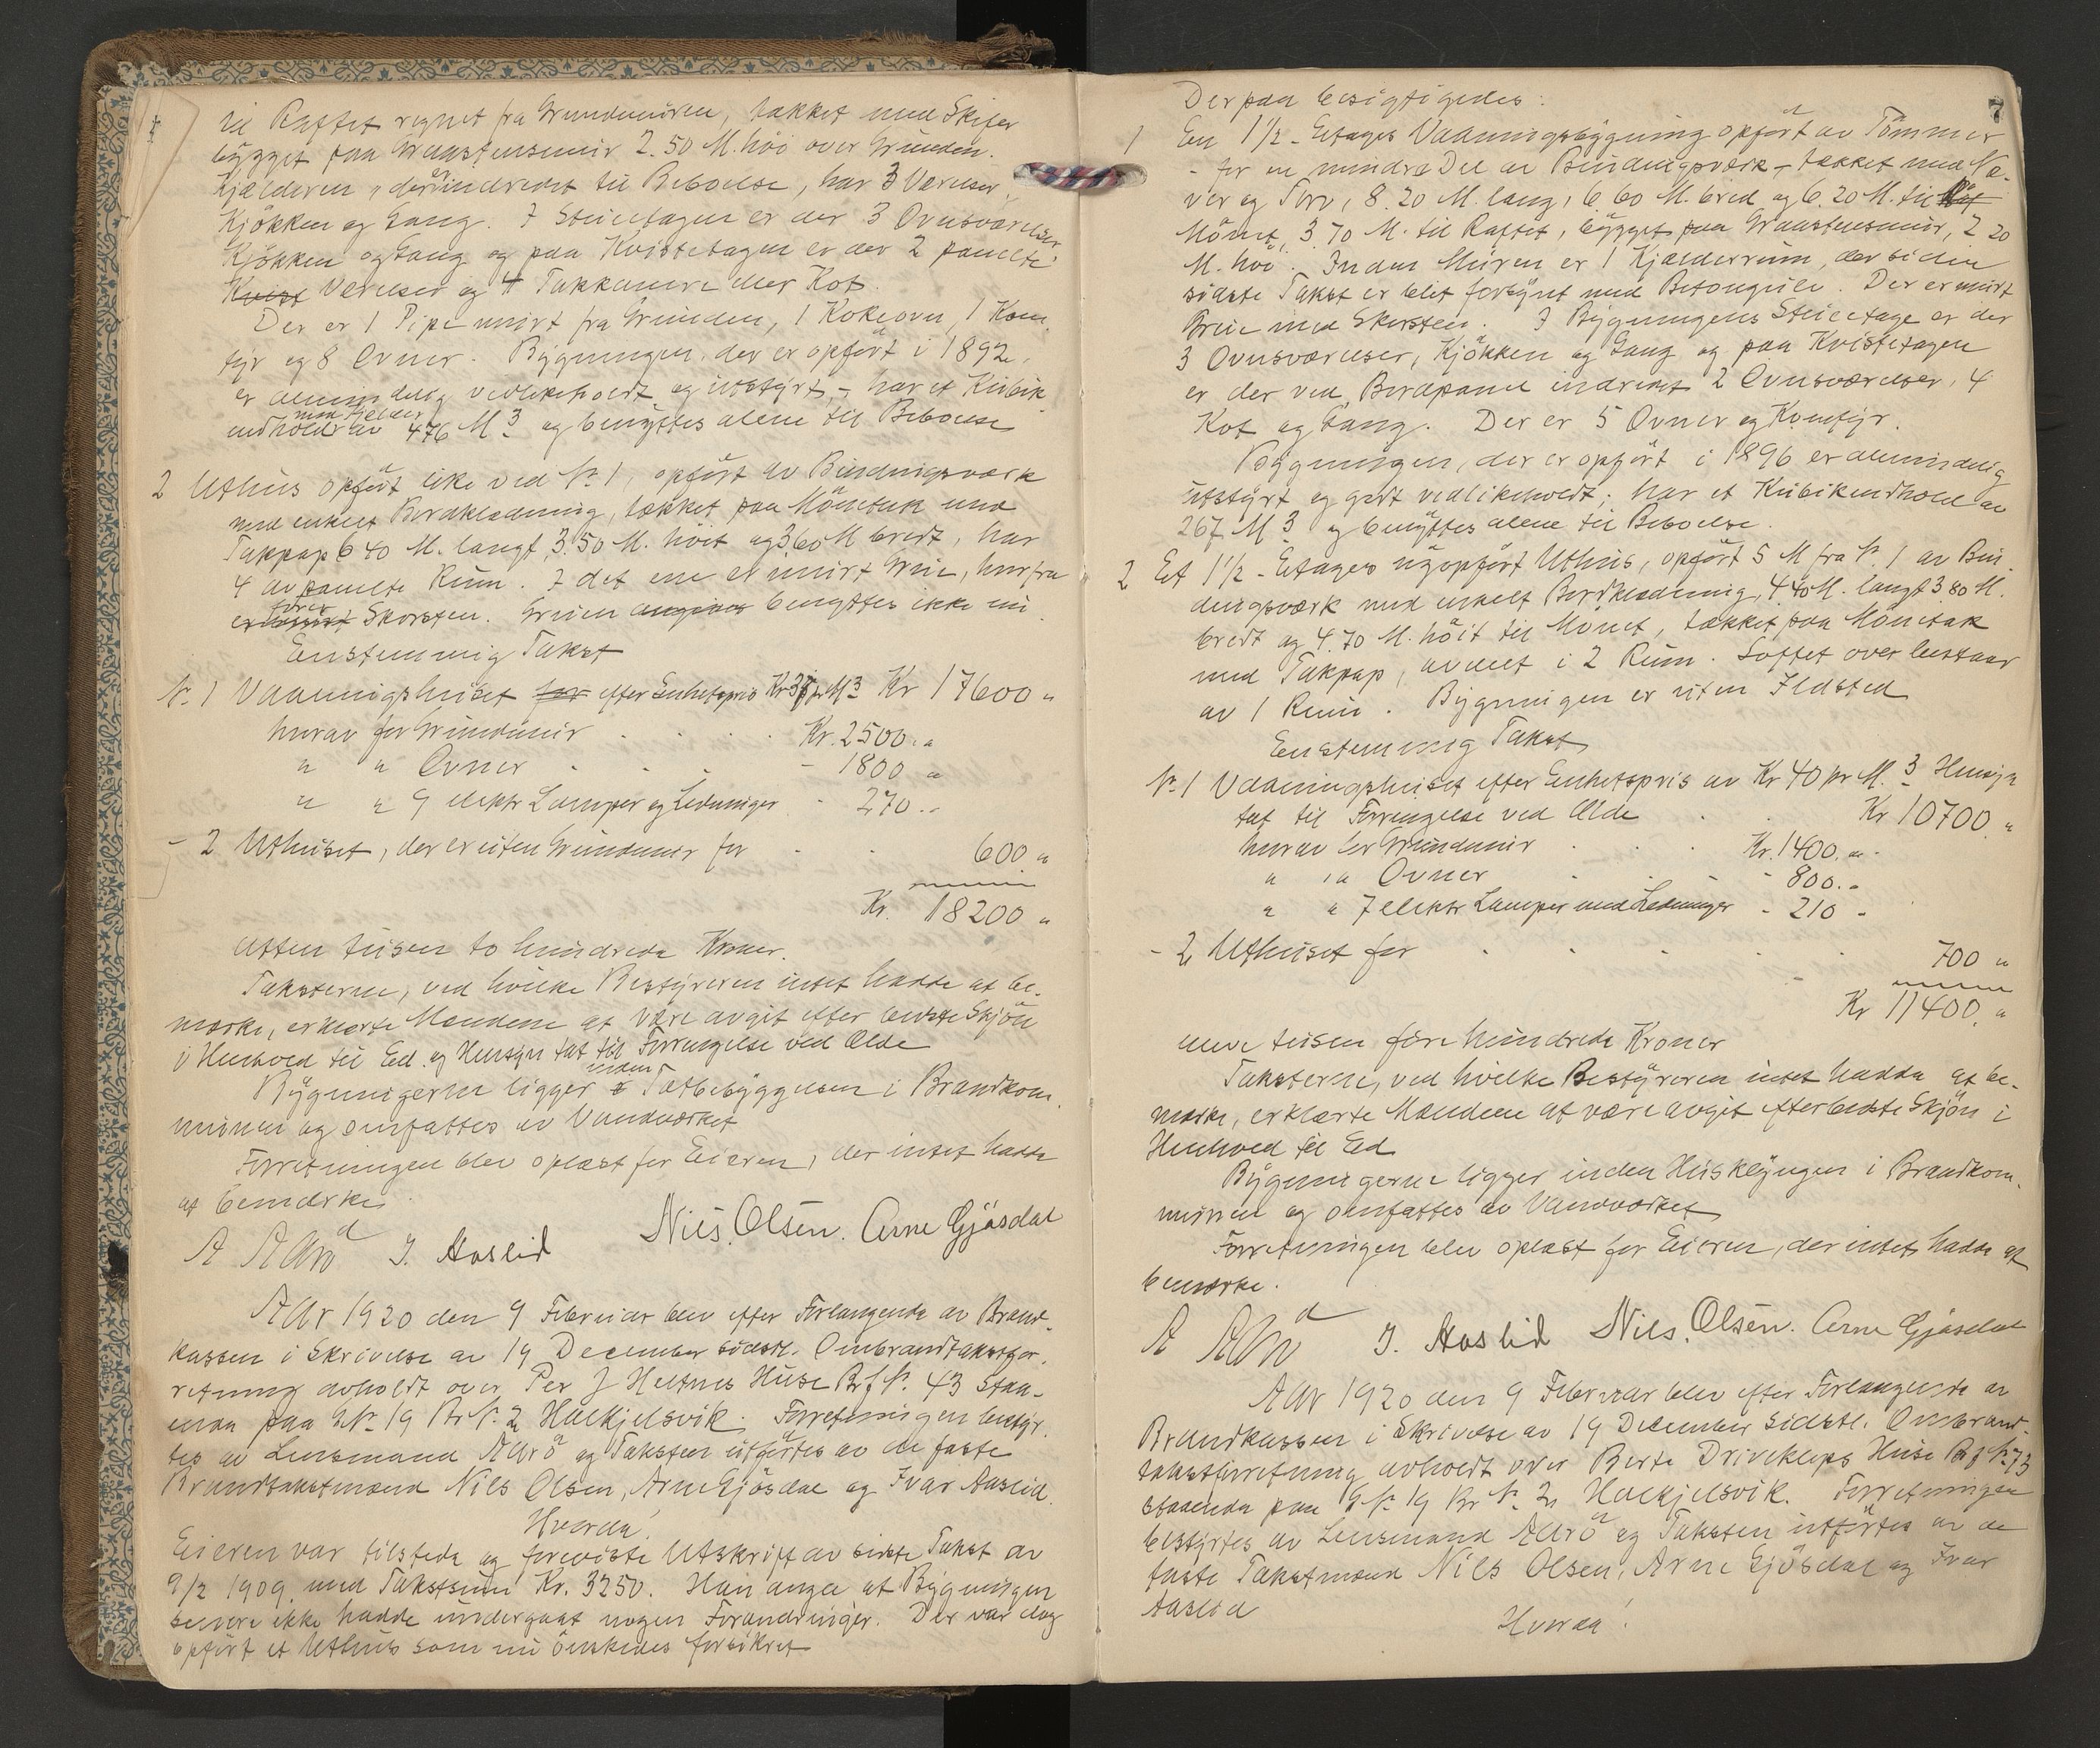 til Raftet regnet fra Grundmuren, tækket med Skifer
bygget paa Graastensmur 2.50 M. höi over Grunden.
Kjælderen, der er indredet til Beboelse, har 3 Værelser
Kjökken og Gang. I Stueetagen er der 3 Ovnsværelser
Kjökken og Gang og paa Kvistetagen er der 2 panelte
Kvist Værelser og 4 Takkamre eller Kot.
Der er 1 Pipe murt fra Grunden, 1 Kokeovn, 1 Kom
fyr og 8 Ovner. Bygningen, der er opfört i 1892,
er almindelig vedlikeholdt og utstyrt, - har et Kubik
med Kjelder
indhold av 476 M3 og benyttes alene til Beboelse
2 Uthus opfört like ved No 1, opfört av Bindingsverk
med enkelt Bordklædning, tækket paa Mönetak med
Takpap 6 40 M. langt, 3.50 M. höit og 3,60 M bredt, har
4 avpanelte Rum. I det ene er murt Grue, hvorfra
er fört Skorsten. Gruen angives benyttes ikke nu
Enstemmig Takst
No 1 Vaaningshuset for efter Enhetspris Kr 37 pr M3 Kr 17600 "
hvorav for Grundmur . . . . Kr. 2500. "
" " Ovner . . . - 1800 "
" " 9 elektr Lamper og Ledninger - 270. "
- 2 Uthuset, der er uten Grundmur for . . 600 "
Kr. 18200 "
Atten tusen to hundrede Kroner.
Taksterne, ved hvilke Bestyreren intet hadde at be-
merke, erklærte Mændene at være avgit efter bedste Skjön
i Henhold til Ed. og Hensyn tat til Forringelse ved Ælde
inden
Bygningerne ligger i Tætbebyggelsen i Brandkom
munen og omfattes av Vandværket
Forretningen blev oplæst for Eieren, der intet hadde
at bemærke.
A Aarö d I. Aaslid Nils. Olsen. Arne Gjösdal
Aar 1920 den 9 Februar blev efter Forlangende av Brand-
kassen i Skrivelse av 19 December sidstl. Ombrandtakstfor-
retning avholdt over Per J Heltnes Huse Brf No. 43 staa-
ende paa GNo 19 Br No. 2 Halkjelsvik. Forretningen besty-
tes av Lensmand Aarö og Taksten utförtes av de faste
Brandtakstmænd Nils Olsen, Arne Gjösdal og Ivar Aaslid.
Hvorda!
Eieren var tilstede og foreviste Utskrift av sidste Takst av
9/2 1909 med Takstsum Kr. 3250. Han angav at Bygningen
senere ikke hadde undergaat nogen Forandringer. Der var dog
opfört et Uthus som nu önskedes forsikret
7
Derpaa besigtigedes:
1 En 1 1/2 - Etages Vaaningsbygning opfört av Tömmer
- for en mindre Del av Bindingsværk - tækket med Næ-
ver og Torv, 8.20 M. lang, 6 60 M. bred og 6.20 M. til
Mönet, 3.70 M. til Raftet, bygget paa Graastensmur, 2 20
M. höi. Inden Muren er 1 Kjælderrum, der siden
sidste Takst er blit forsynet med Betongulv. Der er murt
Grue med Skorsten. I Bygningens Stueetage er der
3 Ovnsværelser, Kjökken og Gang og paa Kvistetagen
er der ved Bordpanel indredet 2 Ovnsværelser, 4
Kot og Gang. Der er 5 Ovner og Komfyr.
Bygningen, der er opfört i 1896 er almindelig
utstyrt og godt vedlikeholdt; har et Kubikindhold av
267 M3 og benyttes alene til Beboelse.
2 Et 1 1/2 - Etages nyopfört Uthus, opfört 5 M fra No. 1 av Bin-
dingsværk med enkelt Bordklædning, 4 40 M. langt 3 80 M.
bredt og 4.70 M. höit til Mönet, tækket paa Mönetak
med Takpap, avdelt i 2 Rum. Loftet over bestaar
av 1 Rum. Bygningen er uten Ildsted
Enstemmig Takst
No 1 Vaaningshuset efter Enhetspris av Kr 40 pr M.3 Hensyn
tat til Forringelse ved Ælde . . Kr 10700 "
hvorav for Grundmur . . . Kr. 1400. "
" " Ovner . . . - 800. "
" " 7 elektr Lamper med Ledninger - 210 "
- 2 Uthuset for . . . . . 700 "
Kr 11400. "
elleve tusen fire hundrede Kroner
Taksterne, ved hvilke Bestyreren intet hadde at be-
merke, erklærte Mændene at være avgit efter bedste Skjön i
Henhold til Ed
Bygningerne ligger inden Husklyngen i Brandkom-
munen og omfattes av Vandværket
Forretningen blev oplæst for Eieren, der intet hadde at
bemærke.
A Aarö d I. Aaslid Nils. Olsen. Arne Gjösdal
Aar 1920 den 9 Februar blev efter Forlangende av
Brandkassen i Skrivelse av 19 December sidstl. Ombrand-
takstforretning avholdt over Berte Drivekleps Huse Brf No. 73
staaende paa GNo 19 Br No. 2 Halkjelsvik. Forretningen
bestyrtes av Lensmand Aarö og Taksten utförtes av de
faste Takstmænd Nils Olsen, Arne Gjösdal og Ivar
Aaslid
Hvorda!